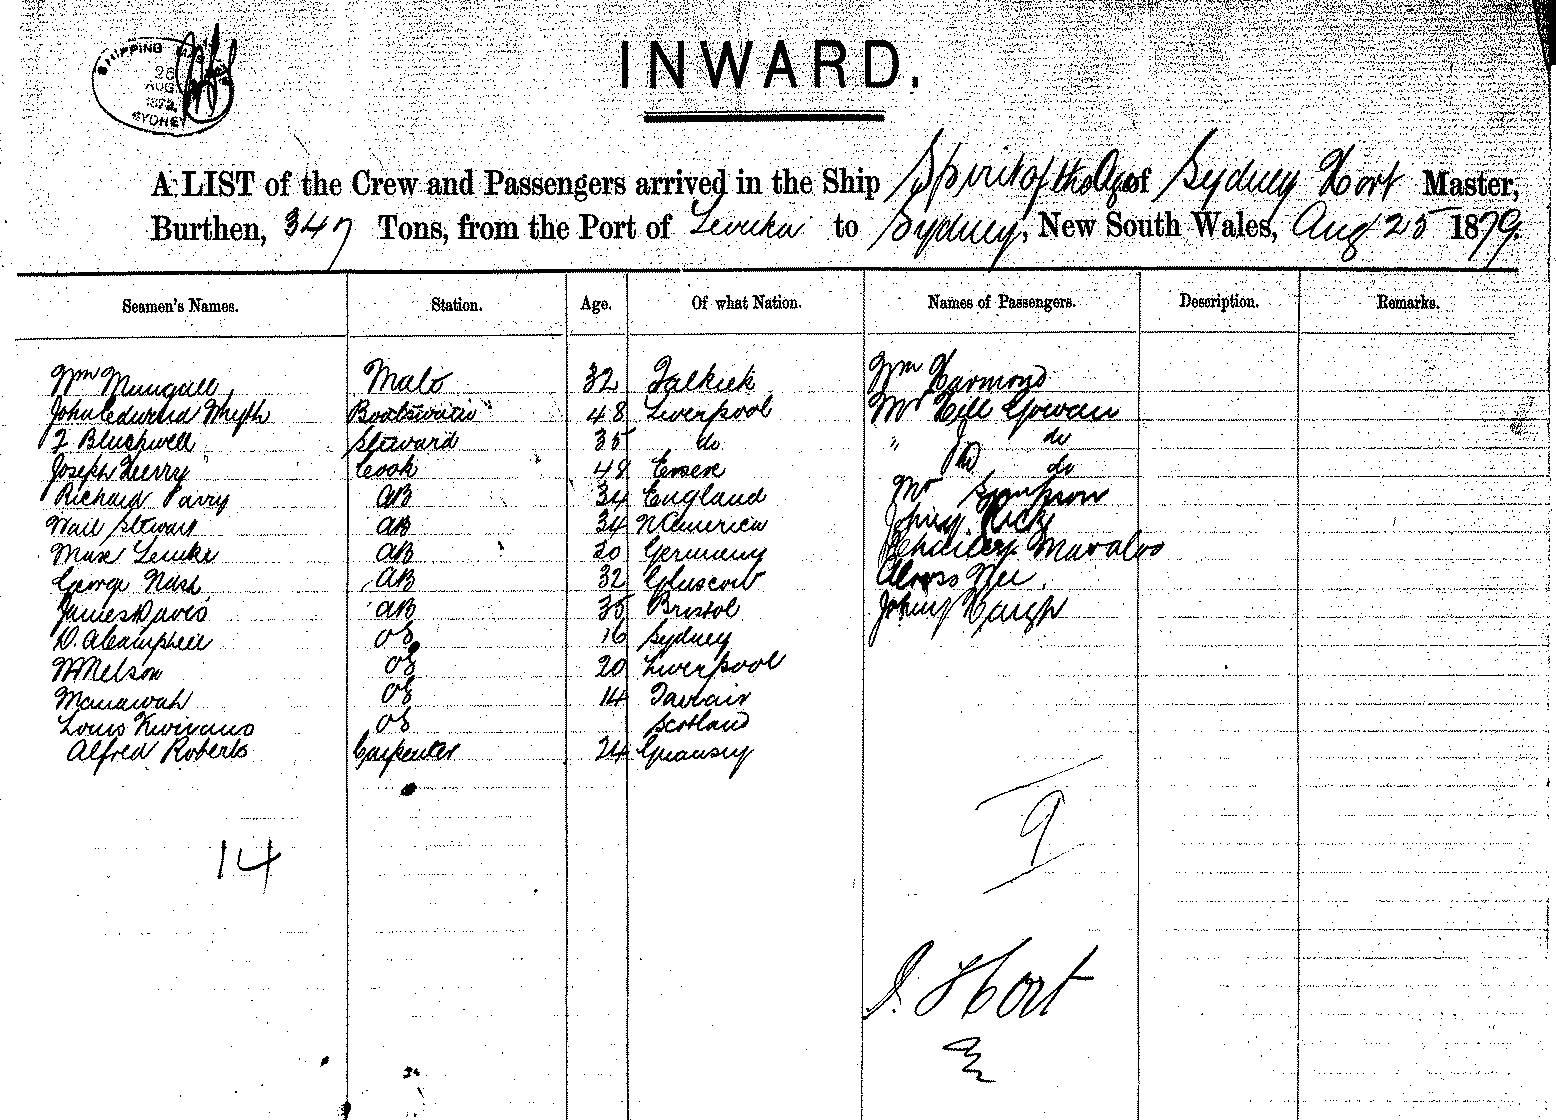 SHIPPING
26
AUG
1879
SYDNEY
INWARD.
A LIST of the Crew and Passengers arrived in the Ship Spirit of the Age of Sydney Hort Master,
Burthen, 347 Tons, from the Port of Levuka to Sydney, New South Wales, Aug 25 1879.
Seamen's Names. Station. Age. Of what Nation. Names of Passengers. Description. Remarks.
Wm Mungall Mate 32 Falkirk Wm Harmond
John Edward Whyth Boatswain 48 Liverpool Mr Gowan
Steward 35 do " do
Joseph Cook 48 Essex do
Richard Parry AB 34 England Mr Simpson
Stewart AB 34 N America
Max AB 20 Germany
George Nash AB 32 Alonso
James Davis AB 35 Bristol
D. A Campbell OS 16 Sydney
W Nelson OS 20 Liverpool
Manawah OS 14
Louis OS Scotland
Alfred Roberts Carpenter 24
14
9
S. Hort